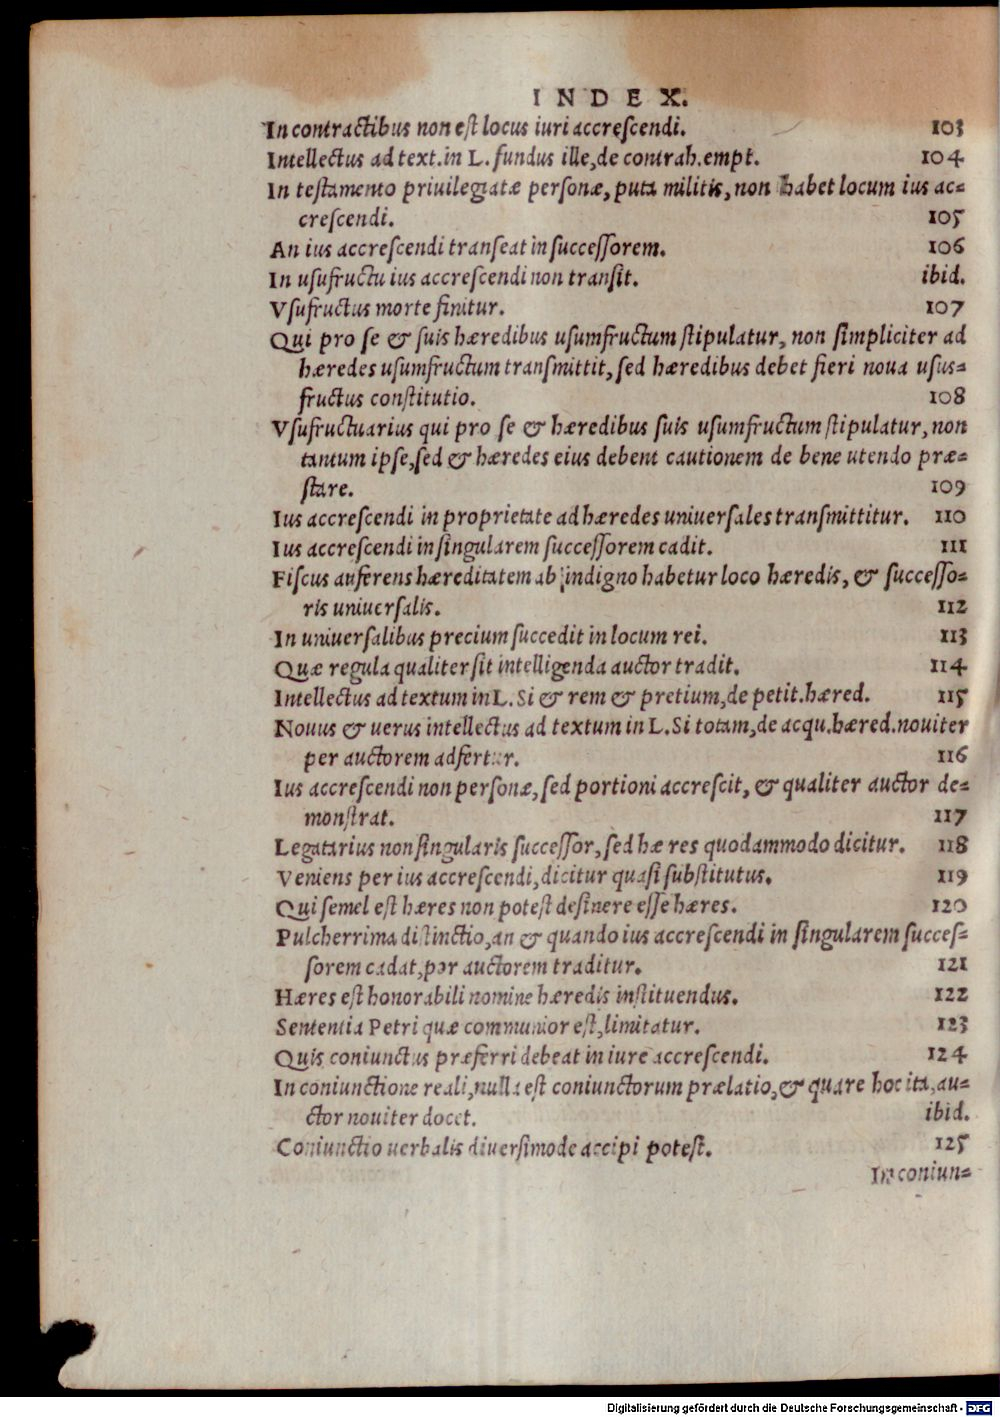 INDEX.
In contractibus non est locus iuri accrescendi. 103
Intellectus ad text. in L. fundus ille, de contrah. empt. 104
In testamento priuilegiatæ personæ, puta militis, non habet locum ius ac=
crescendi. 105
An ius accrescendi transeat in successorem. 106
In usufructu ius accrescendi non transit. ibid.
Vsufructus morte finitur. 107
Qui pro se & suis hæredibus usumfructum stipulatur, non simpliciter ad
hæredes usumfructum transmittit, sed hæredibus debet fieri noua usus=
fructus constitutio. 108
Vsufructuarius qui pro se & hæredibus suis usumfructum stipulatur, non
tantum ipse, sed & hæredes eius debent cautionem de bene utendo præ=
stare. 109
Ius accrescendi in proprietate ad hæredes uniuersales transmittitur. 110
Ius accrescendi in singularem successorem cadit. 111
Fiscus auferens hæreditatem ab indigno habetur loco hæredis, & successo=
ris uniuersalis. 112
In uniuersalibus precium succedit in locum rei. 113
Quæ regula qualiter sit intelligenda auctor tradit. 114
Intellectus ad textum in L. Si & rem & pretium, de petit. hæred. 115
Nouus & uerus intellectus ad textum in L. Si totam, de acqu. hæred. nouiter
per auctorem adfertur. 116
Ius accrescendi non personæ, sed portioni accrescit, & qualiter auctor de=
monstrat. 117
Legatarius non singularis successor, sed hæ res quodammodo dicitur. 118
Veniens per ius accrescendi, dicitur quasi substitutus. 119
Qui semel est hæres non potest desinere esse hæres. 120
Pulcherrima distinctio, an & quando ius accrescendi in singularem succes=
sorem cadat, per auctorem traditur. 121
Hæres est honorabili nomine hæredis instituendus. 122
Sententia Petri quæ communior est, limitatur. 123
Quis coniunctus præferri debeat in iure accrescendi. 124
In coniunctione reali, nulla est coniunctorum prælatio, & quare hoc ita, au=
ctor nouiter docet. ibid.
Coniunctio uerbalis diuersimode accipi potest. 125
In coniun=
Digitalisierung gefördert durch die Deutsche Forschungsgemeinschaft - DFG